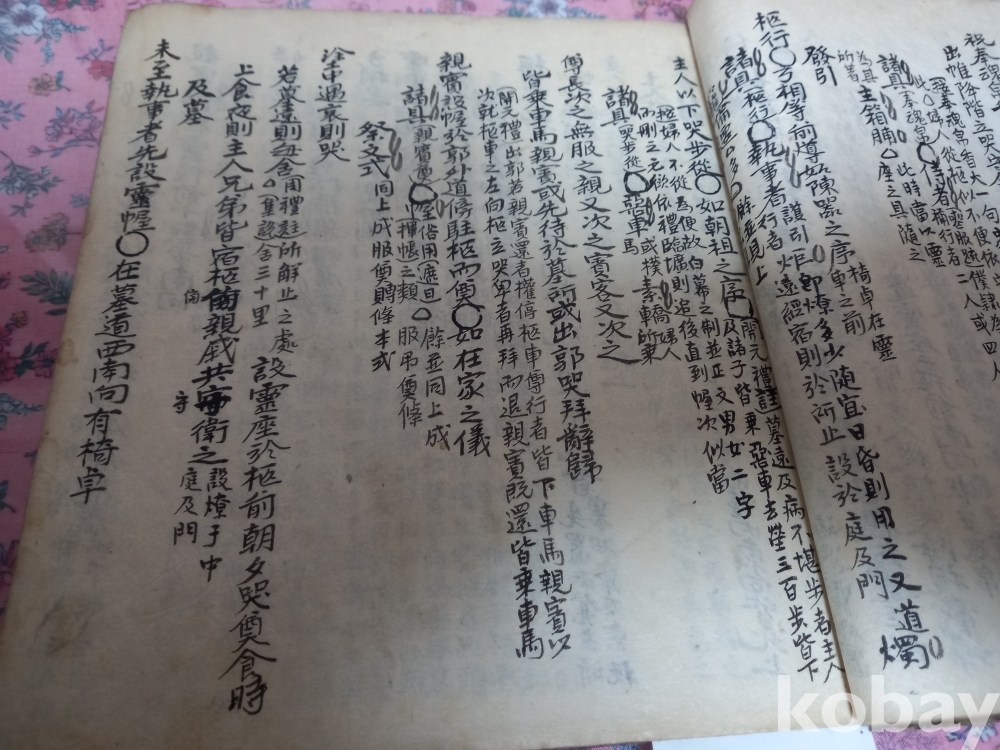 祝奉魂
諸具 奉魂帛 侍者 此時當以靈
為具 主箱 脯 座之具 隨之
所着
發引
柩行 方相等前導如陳器之序 椅卓在靈車之前
諸具 柩行 執事者 行者 護引 炬 遠經宿則於所止設於庭及門
卽燎 多少隨宜 日昏則用之 又道燭
餘並見上
主人以下哭步從 如朝祖之序 開元禮註墓遠及病不堪步者主人
及諸子皆乘惡車去塋三百步皆下
柩婦人不從為便故白幕之制並正文男女二字
而刪之 元欲依禮臨壙則追後直到幄次似當
諸具 哭步從 惡車 馬 或樸素轎婦人所乘
尊長次之無服之親又次之賓客又次之
皆乘車馬親賓或先待於墓所或出郭哭拜辭歸
開元禮出郭若親賓還者權停柩車尊行者皆下車馬親賓以
次就柩車之左向柩立哭卑者再拜而退親賓既還皆乘車馬
親賓設幄於郭外道傍駐柩而奠 如在家之儀
諸具 親賓奠 俗用遮日 餘並同上成
幄 揮帳之類 服弔奠條
祭文式 同上成服奠賻條本式
塗中遇哀則哭
若墓遠則每舍 用禮註所解止之處 集註舍三十里 設靈座於柩前朝夕哭奠食時
上食夜則主人兄弟皆宿柩傍親戚共守衛之 設燎于中庭及門
及墓
未至執事者先設靈幄 在墓道西南向有椅卓
kobay